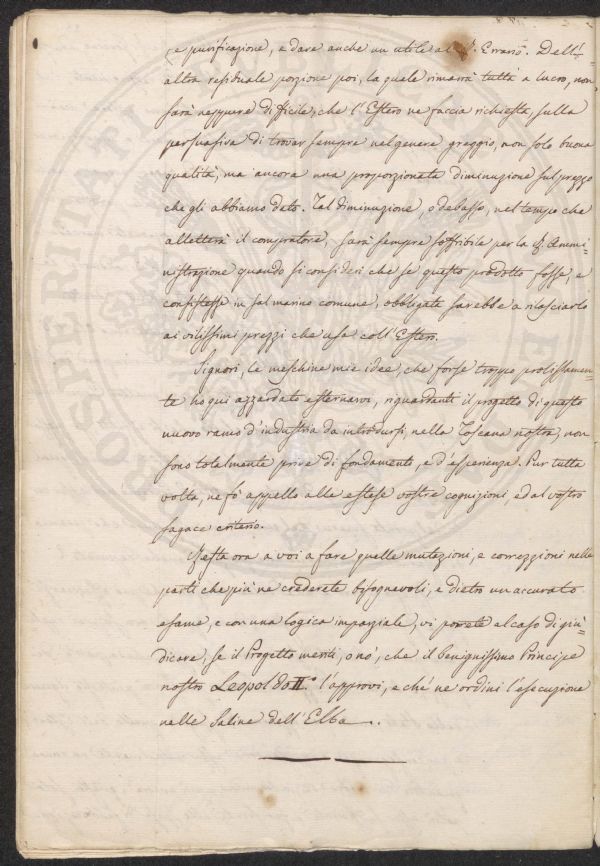 e purificazione, e dare anche un utile al R. Erario. Dell'
altra residuale porzione poi, la quale rimarrà tutta a lucro, non
sarà neppure difficile, che l'Estero ne faccia richiesta, sulla
persuasiva di trovar sempre nel genere greggio, non solo buona
qualità, ma ancora una proporzionata diminuzione sul prezzo
che gli abbiamo dato. Tal diminuzione, o debasso, nel tempo che
alletterà il compratore, sarà sempre soffribile per la R. Ammi=
nistrazione quando si consideri che se questo prodotto fosse, e
consistesse in sal marino comune, obbligata sarebbe a rilasciarlo
ai vilissimi prezzi che usa coll'Estero.
Signori, le meschine mie idee, che forse troppo prolissamen=
te ho qui azzardato esternarvi, riguardanti il progetto di questo
nuovo ramo d'industria da introdursi, nella Toscana nostra, non
sono totalmente prive di fondamenti, e d'esperienza. Pur tutta
volta, ne fò appello alle estese vostre cognizioni, ed al vostro
sagace criterio.
Resta ora a voi a fare quelle mutazioni, e correzzioni nelle
parti che più ne crederete bisognevoli, e dietro un accurato
esame, e con una logica imparziale, vi porrete al caso di giu=
dicare, se il Progetto meriti, o nò, che il benignissimo Principe
nostro Leopoldo II.° l'approvi, e ché ne ordini l'esecuzione
nelle Saline dell'Elba.
PROSPERITATI PUBLI